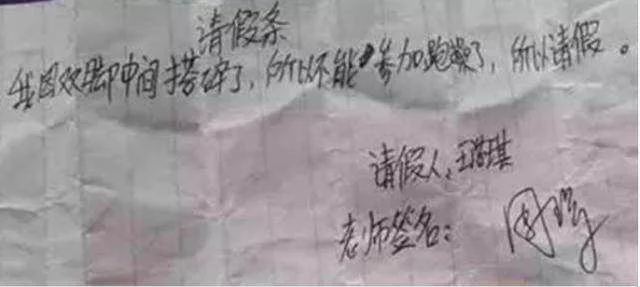 请假条
我因双脚中间搭碎了，所以不能参加跑操了，所以请假。
请假人：王
老师签名：